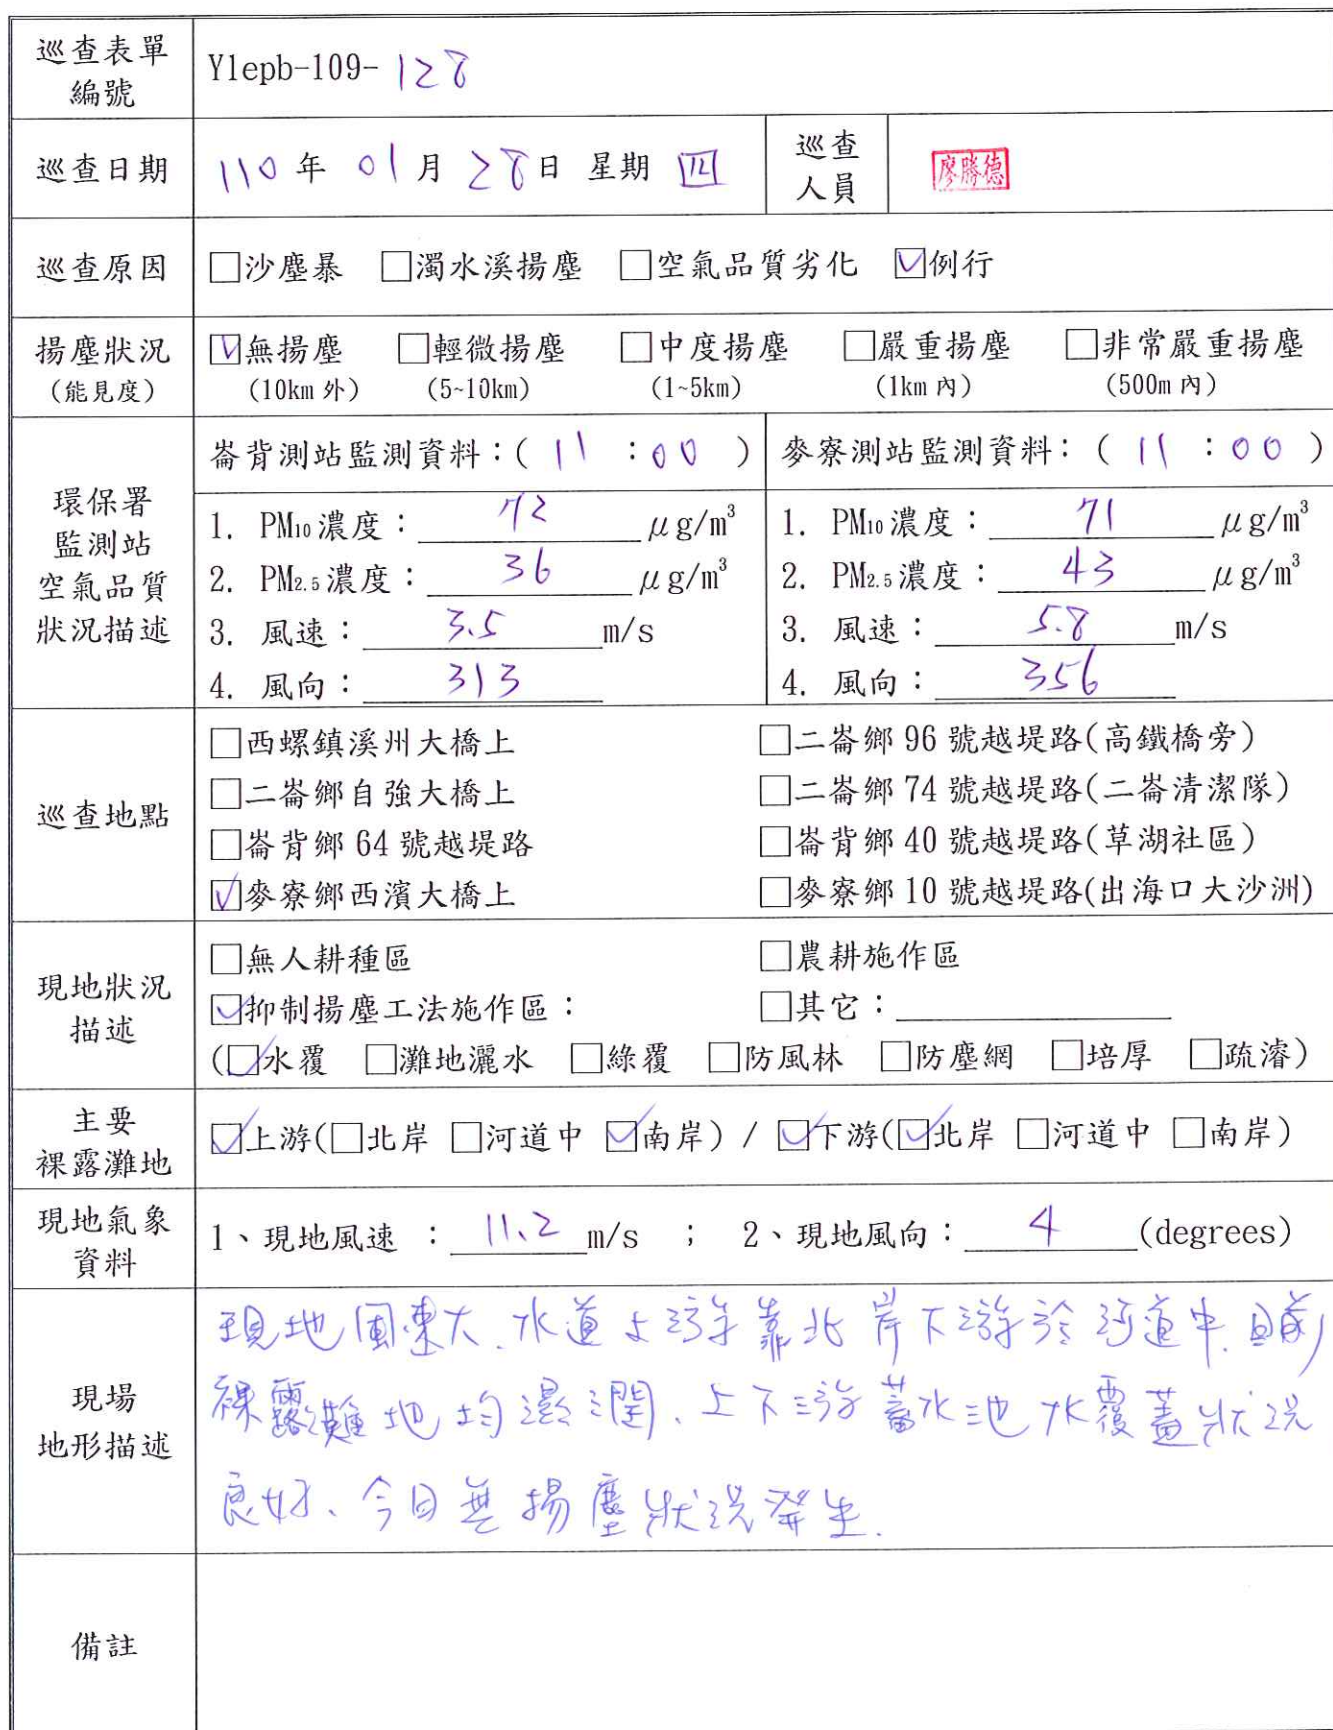 巡查表單
編號
Ylepb-109-128
巡查日期
110年 01月 28日 星期 四
巡查
人員
廖勝德
巡查原因
□沙塵暴 □濁水溪揚塵 □空氣品質劣化 ☑例行
揚塵狀況
(能見度)
☑無揚塵 □輕微揚塵 □中度揚塵 □嚴重揚塵 □非常嚴重揚塵
(10km 外) (5~10km) (1~5km) (1km 內) (500m 內)
環保署
監測站
空氣品質
狀況描述
崙背測站監測資料：( 11 ：00 )
1. PM10濃度： 72 μg/m³
2. PM2.5濃度： 36 μg/m³
3. 風速： 3.5 m/s
4. 風向： 313
麥寮測站監測資料：( 11 ：00 )
1. PM10濃度： 71 μg/m³
2. PM2.5濃度： 43 μg/m³
3. 風速： 5.8 m/s
4. 風向： 356
巡查地點
□西螺鎮溪州大橋上 □二崙鄉 96 號越堤路(高鐵橋旁)
□二崙鄉自強大橋上 □二崙鄉 74 號越堤路(二崙清潔隊)
□崙背鄉 64 號越堤路 □崙背鄉 40 號越堤路(草湖社區)
☑麥寮鄉西濱大橋上 □麥寮鄉 10 號越堤路(出海口大沙洲)
現地狀況
描述
□無人耕種區 □農耕施作區
☑抑制揚塵工法施作區： □其它：
(☑水覆 □灘地灑水 □綠覆 □防風林 □防塵網 □培厚 □疏濬)
主要
裸露灘地
☑上游(□北岸 □河道中 ☑南岸) / ☑下游(☑北岸 □河道中 □南岸)
現地氣象
資料
1、現地風速 ： 11.2 m/s ； 2、現地風向： 4 (degrees)
現場
地形描述
現地風速大、水道上游靠北岸下游於河道中、目前
裸露灘地均濕潤、上下游蓄水池水覆蓋狀況
良好、今日無揚塵狀況發生.
備註